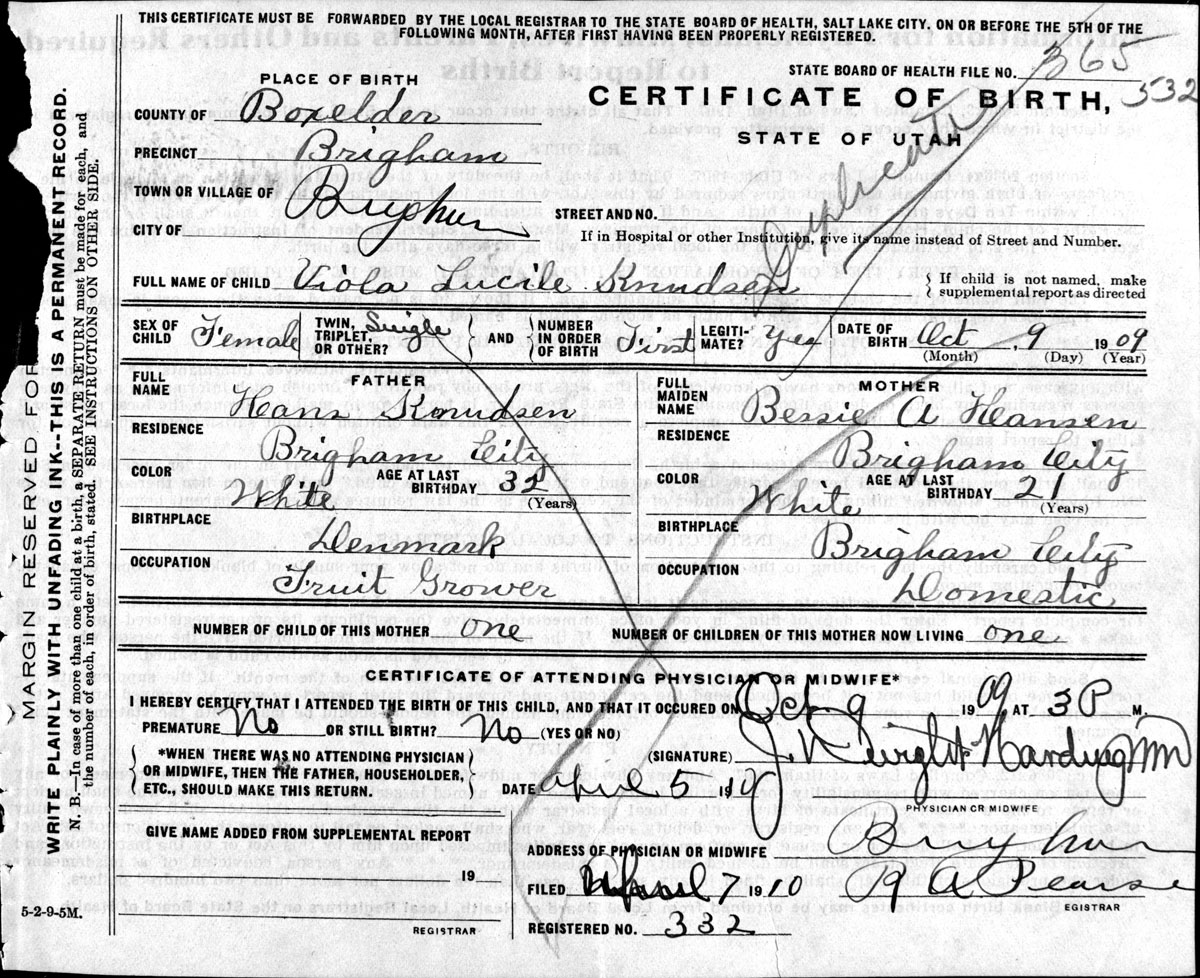 THIS CERTIFICATE MUST BE FORWARDED BY THE LOCAL REGISTRAR TO THE STATE BOARD OF HEALTH, SALT LAKE CITY, ON OR BEFORE THE 5TH OF THE
FOLLOWING MONTH, AFTER FIRST HAVING BEEN PROPERLY REGISTERED.
MARGIN RESERVED FOR
WRITE PLAINLY WITH UNFADING INK--THIS IS A PERMANENT RECORD.
N. B.—In case of more than one child at a birth, a SEPARATE RETURN must be made for each, and
the number of each, in order of birth, stated. SEE INSTRUCTIONS ON OTHER SIDE.
PLACE OF BIRTH
STATE BOARD OF HEALTH FILE NO. 365
COUNTY OF Boxelder
CERTIFICATE OF BIRTH, 532
PRECINCT Brigham
STATE OF UTAH
Duplicate
TOWN OR VILLAGE OF
CITY OF Brigham
STREET AND NO.
If in Hospital or other Institution, give its name instead of Street and Number.
FULL NAME OF CHILD Viola Lucile Knudsen
If child is not named, make
supplemental report as directed
SEX OF CHILD Female TWIN, TRIPLET, OR OTHER? Single AND NUMBER IN ORDER OF BIRTH First LEGITIMATE? Yes DATE OF BIRTH Oct, 9 1909
(Month) (Day) (Year)
FATHER
FULL NAME Hans Knudsen
RESIDENCE Brigham City
COLOR White AGE AT LAST BIRTHDAY 32 (Years)
BIRTHPLACE Denmark
OCCUPATION Fruit Grower
MOTHER
FULL MAIDEN NAME Bessie A Hansen
RESIDENCE Brigham City
COLOR White AGE AT LAST BIRTHDAY 21 (Years)
BIRTHPLACE Brigham City
OCCUPATION Domestic
NUMBER OF CHILD OF THIS MOTHER one NUMBER OF CHILDREN OF THIS MOTHER NOW LIVING one
CERTIFICATE OF ATTENDING PHYSICIAN OR MIDWIFE*
I HEREBY CERTIFY THAT I ATTENDED THE BIRTH OF THIS CHILD, AND THAT IT OCCURED ON Oct 9 1909 AT 3 P M.
PREMATURE No OR STILL BIRTH? No (YES OR NO)
*WHEN THERE WAS NO ATTENDING PHYSICIAN
OR MIDWIFE, THEN THE FATHER, HOUSEHOLDER,
ETC., SHOULD MAKE THIS RETURN.
(SIGNATURE) J. Dwight Harding MD
DATE April 5 19
PHYSICIAN OR MIDWIFE
GIVE NAME ADDED FROM SUPPLEMENTAL REPORT
19
REGISTRAR
ADDRESS OF PHYSICIAN OR MIDWIFE Brigham
FILED April 7 1910 P A Pearse
EGISTRAR
REGISTERED NO. 332
5-2-9-5M.